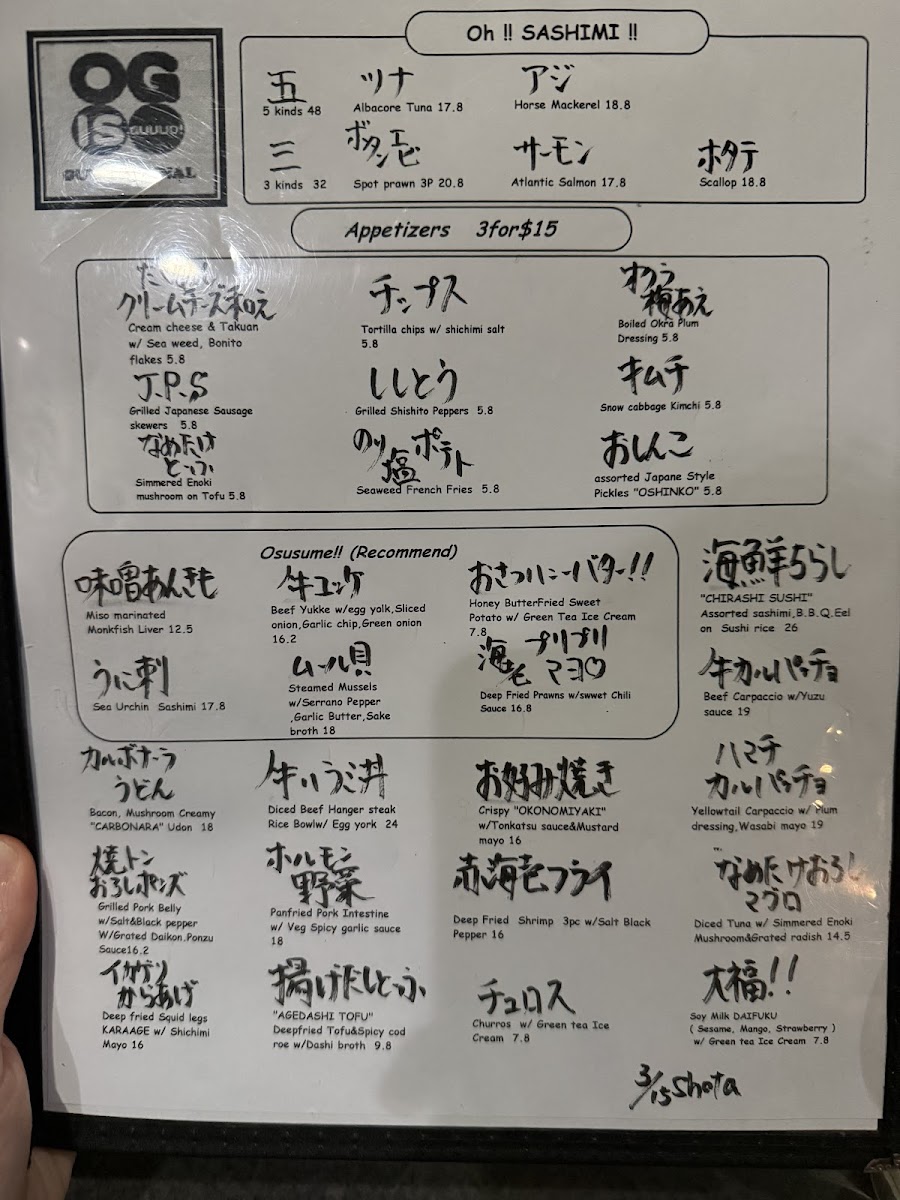 OG
IS
GUUUD!
Oh !! SASHIMI !!
五 ツナ アジ
5 kinds 48 Albacore Tuna 17.8 Horse Mackerel 18.8
三 ボタンエビ サーモン ホタテ
3 kinds 32 Spot prawn 3P 20.8 Atlantic Salmon 17.8 Scallop 18.8
Appetizers 3for$15
クリームチーズ和え
Cream cheese & Takuan
w/ Sea weed, Bonito
flakes 5.8
チップス
Tortilla chips w/ shichimi salt
5.8
オクラ
梅あえ
Boiled Okra Plum
Dressing 5.8
J.P.S
Grilled Japanese Sausage
skewers 5.8
ししとう
Grilled Shishito Peppers 5.8
キムチ
Snow cabbage Kimchi 5.8
なめたけ
とーふ
Simmered Enoki
mushroom on Tofu 5.8
のり塩ポテト
Seaweed French Fries 5.8
おしんこ
assorted Japane Style
Pickles "OSHINKO" 5.8
Osusume!! (Recommend)
味噌あんきも
Miso marinated
Monkfish Liver 12.5
牛ユッケ
Beef Yukke w/egg yolk,Sliced
onion,Garlic chip,Green onion
16.2
おさつハニーバター!!
Honey ButterFried Sweet
Potato w/ Green Tea Ice Cream
7.8
うに刺
Sea Urchin Sashimi 17.8
ムール貝
Steamed Mussels
w/Serrano Pepper
,Garlic Butter,Sake
broth 18
海老プリプリ
マヨ♡
Deep Fried Prawns w/swwet Chili
Sauce 16.8
海鮮ちらし
"CHIRASHI SUSHI"
Assorted sashimi,B.B.Q.Eel
on Sushi rice 26
牛カルパッチョ
Beef Carpaccio w/Yuzu
sauce 19
カルボナーラ
うどん
Bacon, Mushroom Creamy
"CARBONARA" Udon 18
牛ハラミ丼
Diced Beef Hanger steak
Rice Bowlw/ Egg york 24
お好み焼き
Crispy "OKONOMIYAKI"
w/Tonkatsu sauce&Mustard
mayo 16
ハマチ
カルパッチョ
Yellowtail Carpaccio w/ Plum
dressing,Wasabi mayo 19
焼トン
おろしポンズ
Grilled Pork Belly
w/Salt&Black pepper
W/Grated Daikon.Ponzu
Sauce16.2
ホルモン
野菜
Panfried Pork Intestine
w/ Veg Spicy garlic sauce
18
赤海老フライ
Deep Fried Shrimp 3pc w/Salt Black
Pepper 16
なめたけおろし
マグロ
Diced Tuna w/ Simmered Enoki
Mushroom&Grated radish 14.5
イカゲソ
からあげ
Deep fried Squid legs
KARAAGE w/ Shichimi
Mayo 16
揚げだしとーふ
"AGEDASHI TOFU"
Deepfried Tofu&Spicy cod
roe w/Dashi broth 9.8
チュロス
Churros w/ Green tea Ice
Cream 7.8
大福!!
Soy Milk DAIFUKU
( Sesame, Mango, Strawberry )
w/ Green tea Ice Cream 7.8
3/15 Shota